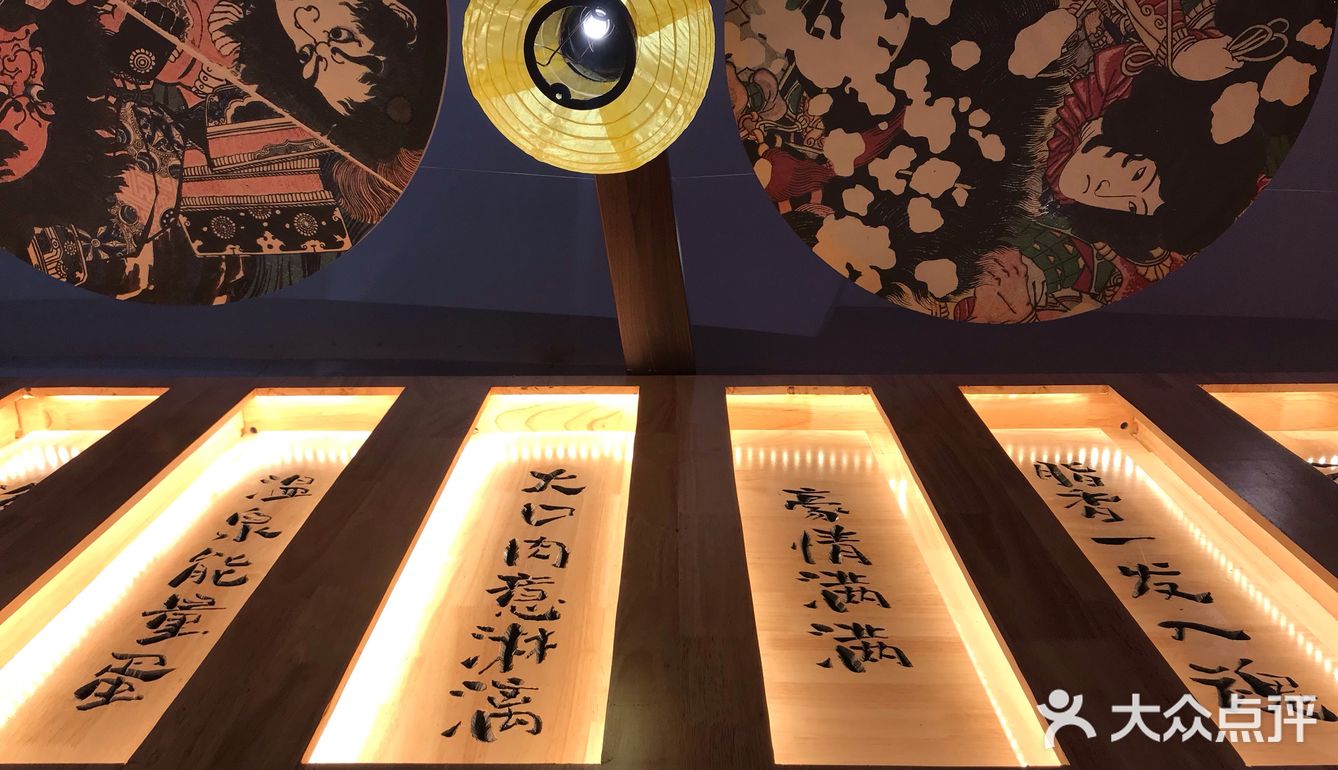 温泉能量蛋
大口肉意淋漓
豪情满满
脂香一发入魂
大众点评